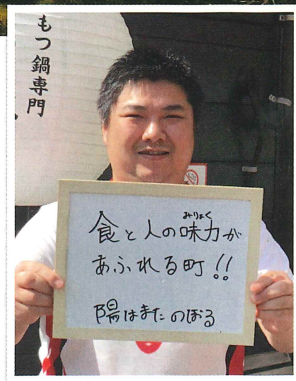 もつ鍋専門
食と人の味力が
みりょく
あふれる町!!
陽はまたのぼる